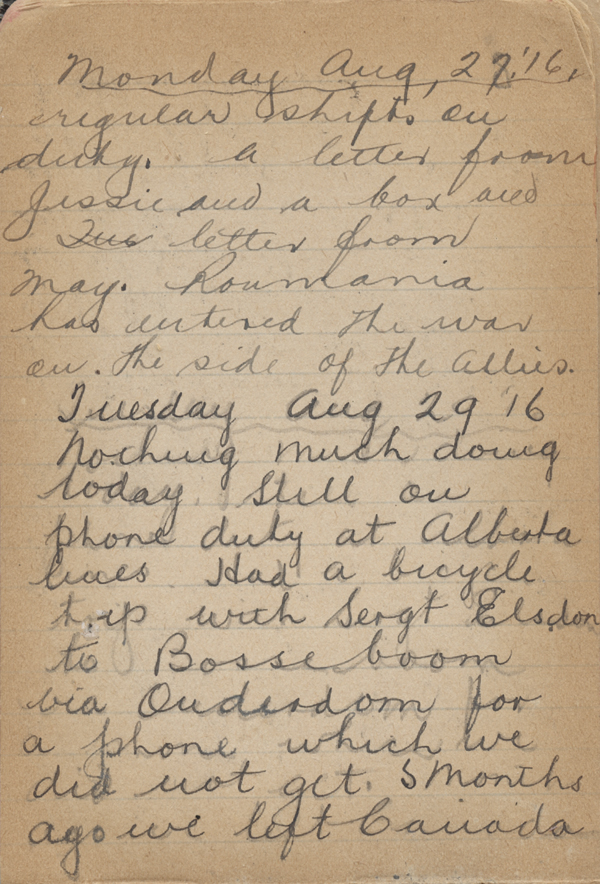 Monday Aug, 27.'16.
regular shifts on
duty. A letter from
Jessie and a box and
letter from
May. Roumania
has entered the war
on. the side of the Allies.
Tuesday Aug 29 '16
Nothing much doing
today. Still on
phone duty at Alberta
lines. Had a bicycle
trip with Sergt Elsdon
to Bosseboom
via Ouderdom for
a phone which we
did not get. 5 Months
ago we left Canada